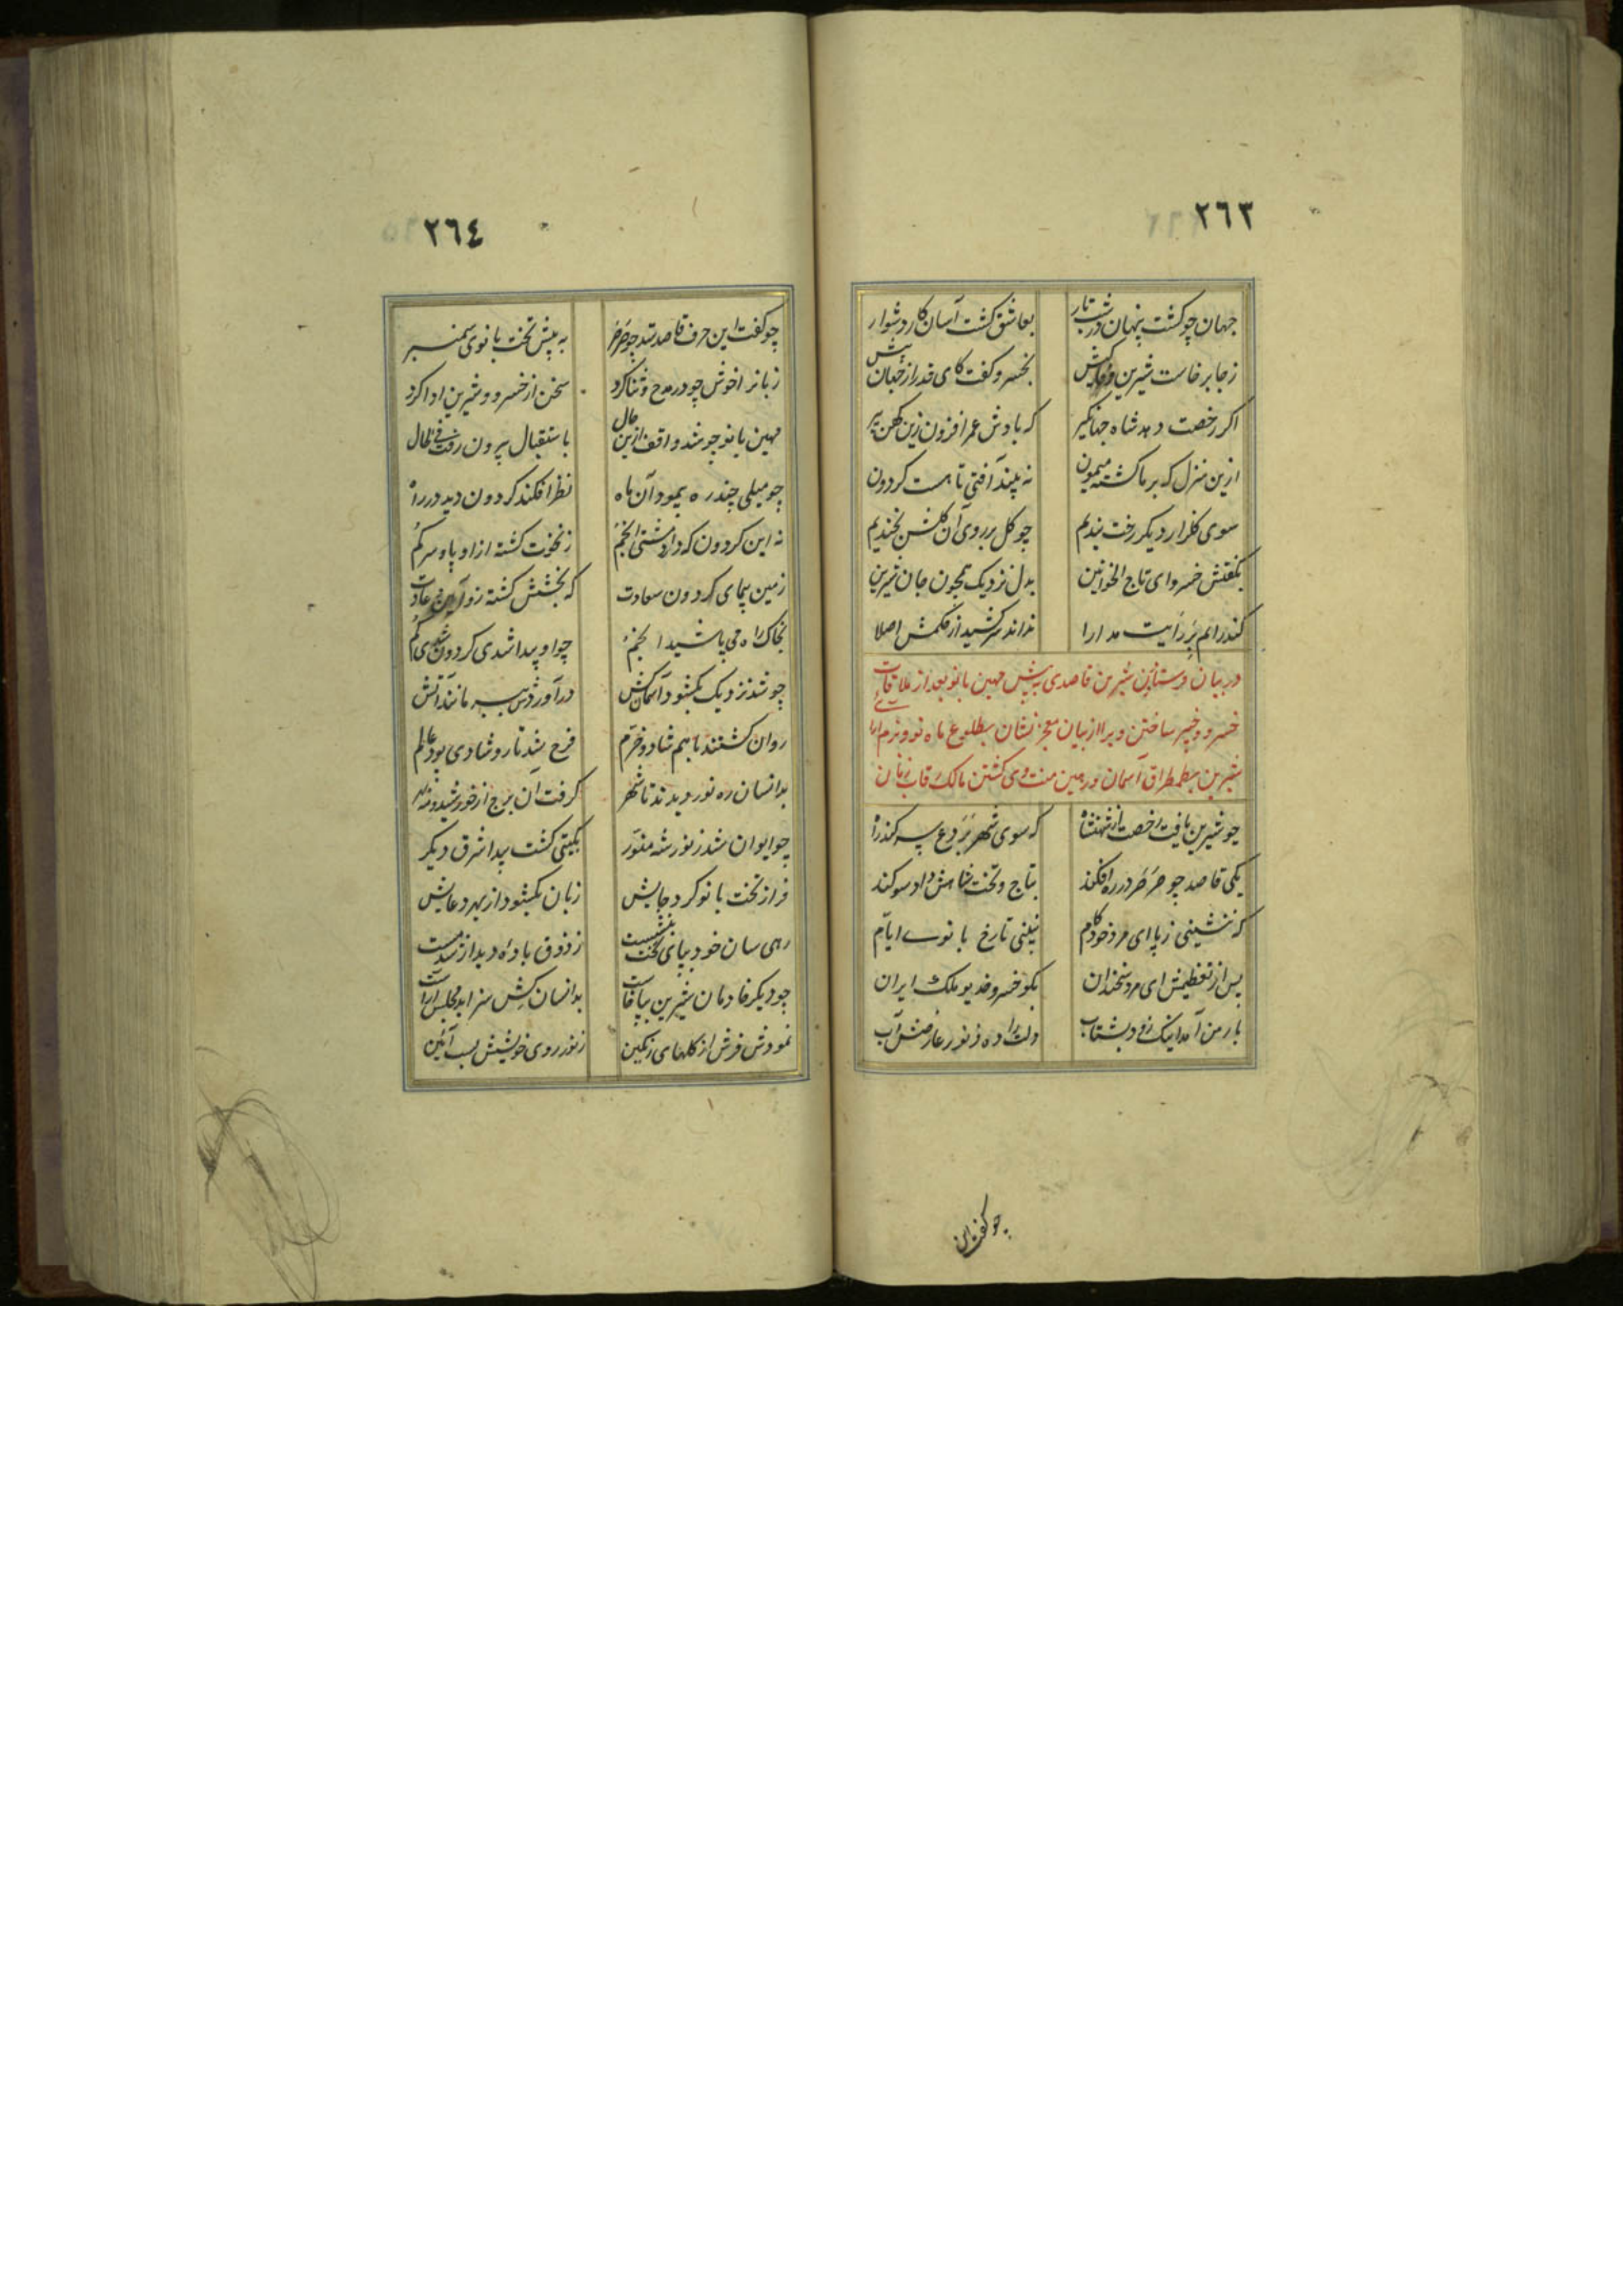 ٢٦٣
جهان چو کشت پنهان در شب تار بعاشق کشت آسان کار دشوار
ز جا برخاست شیرین بخسرو کفت کای
اکر رخصت دهد شاه جهانکیر که بادش عمر افزون زین کهن پیر
ازین منزل که بر ما کشته میمون نه بیند آفتی تا هست کردون
سوی کلزار دیکر رخت بندیم چو کل بر روی آن کلشن بخندیم
بکفتش خسرو ای تاج الخواتین بدل نزدیک همچون جان شیرین
مدارا نداند سر کشید از حکمش اصلا
در بیان فرستادن شیرین قاصدی به پیش مهین بانو بعد از ملاقات
خسرو و خبیر ساختن ویرا از بیان معجز نشان بطلوع ماه نو و بزم
شیرین بطمطراق آسمان و زمین کشتن مالک رقاب زمان
چو شیرین یافت رخصت از شهنشاه که سوی شهر بردع سر کند راه
یکی قاصد چو صرصر در ره افکند بتاج و تخت شاهش داد سوکند
که ننشینی ز پا ای مرد خودکام نبینی تا رخ بانوی ایام
پس از تعظیمش ای مرد سخندان بکو خسرو خدیو ملک ایران
یار من آمد اینک زود بشتاب دلت را ده ز نور عارضش آب
چو کفت این
٢٦٤
چو کفت این حرف قاصد شد چو صرصر به پیش تخت بانوی سمنبر
زبانرا خوش چو در مدح و ثنا کرد سخن از خسرو و شیرین ادا کرد
مهین بانو چو شد واقف ازین حال باستقبال بیرون رفت فی الحال
چو میلی چند ره پیمود آن ماه نظر افکند کردون دید در راه
نه این کردون که دارد مشتی انجم ز نخوت کشته از او پا و سر کم
زمین پیمای کردون سعادت که بخشش کشته زو عادت
بخاک راه می پاشید انجم چو او پیدا شدی کردون شدی کم
چو شد نزدیک بکشود در آوردش ببر مانند آتش
روان کشتند با هم شاد و خرم فرح شد تار و شادی پود عالم
بدانسان ره نوردیدند تا شهر کرفت آن برج از خورشید و مه بهر
چو ایوان شد ز نور شه منور بکیتی کشت پیدا شرق دیکر
فراز تخت بانو کرد جایش زبان بکشود از بهر دعایش
رهی سان خود بپای تخت بنشست ز ذوق باده دیدار شد مست
چو دیکر خادمان شیرین بپا خاست بدانسان کش سزاید مجلس آراست
نمودش فرش از کلهای رنکین ز نور روی خویشش بست آئین